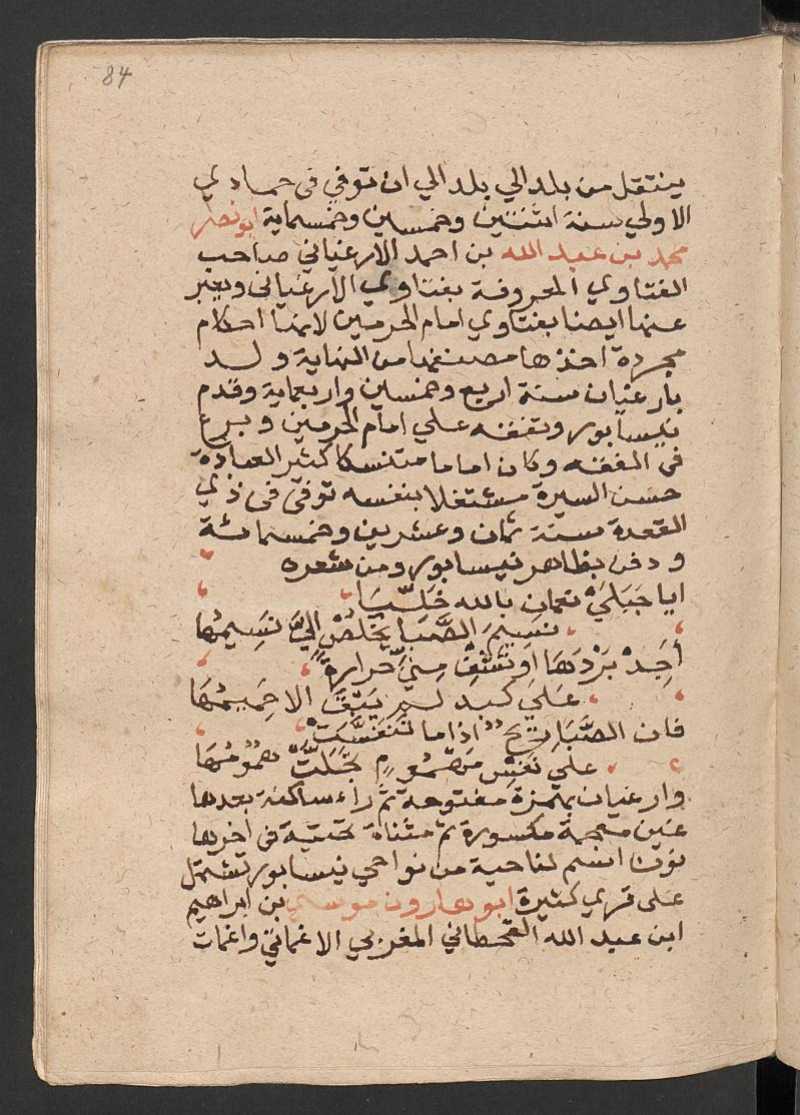 84
ينتقل من بلد الي بلد الي ان توفي في جمادي
الاولي سنة اثنتين وخمسين وخمسماية ابو نصر
محمد بن عبد الله بن احمد الارغياني صاحب
الفتاوي المعروفة بفتاوي الارغياني ويعبر
عنها ايضا بفتاوي امام الحرمين لانها احكام
مجردة اخذها مصنفها من النهاية ولد
بارغيان سنة اربع وخمسين واربعماية وقدم
نيسابور وتفقه علي امام الحرمين وبرع
في الفقه وكان اماما متنسكا كثير العبادة
حسن السيرة مشتغلا بنفسه توفي في ذي
القعدة سنة ثمان وعشرين وخمسمائة
ودفن بظاهر نيسابور ومن شعره
ايا جَبَلَيْ نعمان بالله خَلِّيَا
نَسِيمَ الصَّبَا يَخْلُصْ اِليَّ نَسِيمُها
أَجِدْ بَرْدَهَا اوتَشْفِ مِنّي حرارةً
عَلَي كبد لم يَبْقَ الا حَمِيمُهَا
فان الصَّبَا رِيحٌ اذا ما تَنَفَّسَتْ
علي نَفْسِ مَهْمُومٍ تَجَلَّتْ هُمُومُهَا
وارغيان بهمزة مفتوحة ثم راء ساكنة بعدها
غين معجمة مكسورة ثم مثناة تحتية في اخرها
نون اسم لناحية من نواحي نيسابور تشتمل
علي قري كثيرة ابو هارون موسي بن ابراهيم
ابن عبد الله القحطاني المغربي الاغماتي واغمات